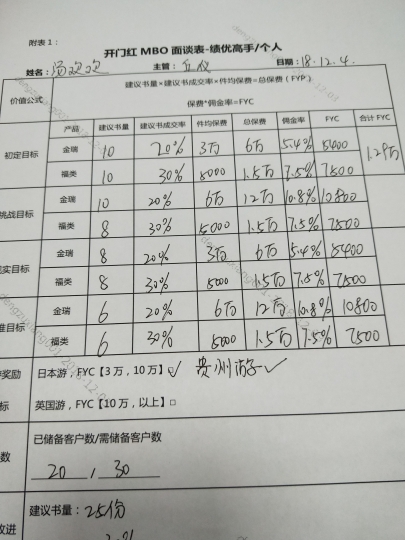 附表1：
开门红MBO面谈表-绩优高手/个人
姓名： 主管： 日期：18.12.4.
价值公式 建议书量×建议书成交率×件均保费=总保费（FYP）
保费*佣金率=FYC
产品 建议书量 建议书成交率 件均保费 总保费 佣金率 FYC 合计FYC
初定目标 金瑞 10 20% 3万 6万 5.4% 5400 1.29万
福类 10 30% 5000 1.5万 7.5% 7500
挑战目标 金瑞 10 20% 6万 12万 10.8% 10800
福类 8 30% 5000 1.5万 7.5% 7500
实目标 金瑞 8 20% 3万 6万 5.4% 5400
福类 8 30% 5000 1.5万 7.5% 7500
准目标 金瑞 6 20% 6万 12万 10.8% 10800
福类 6 30% 5000 1.5万 7.5% 7500
奖励 日本游，FYC【3万，10万】☑ 贵州游 ✓
标 英国游，FYC【10万，以上】□
已储备客户数/需储备客户数
数 20 / 30
建议书量：25份
改进